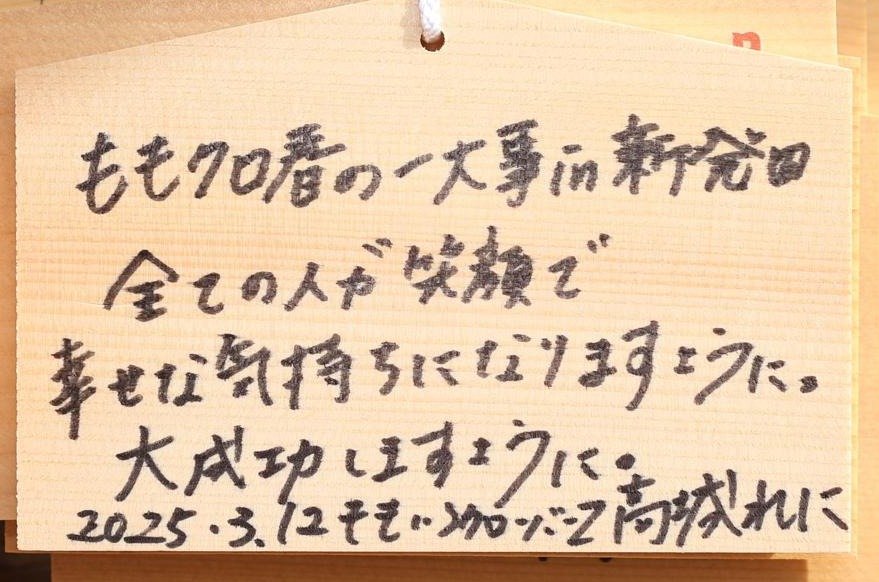 ももクロ春の一大事in新発田
全ての人が笑顔で
幸せな気持ちになりますように。
大成功しますように。
2025.3.12ももいろクローバーZ高城れに